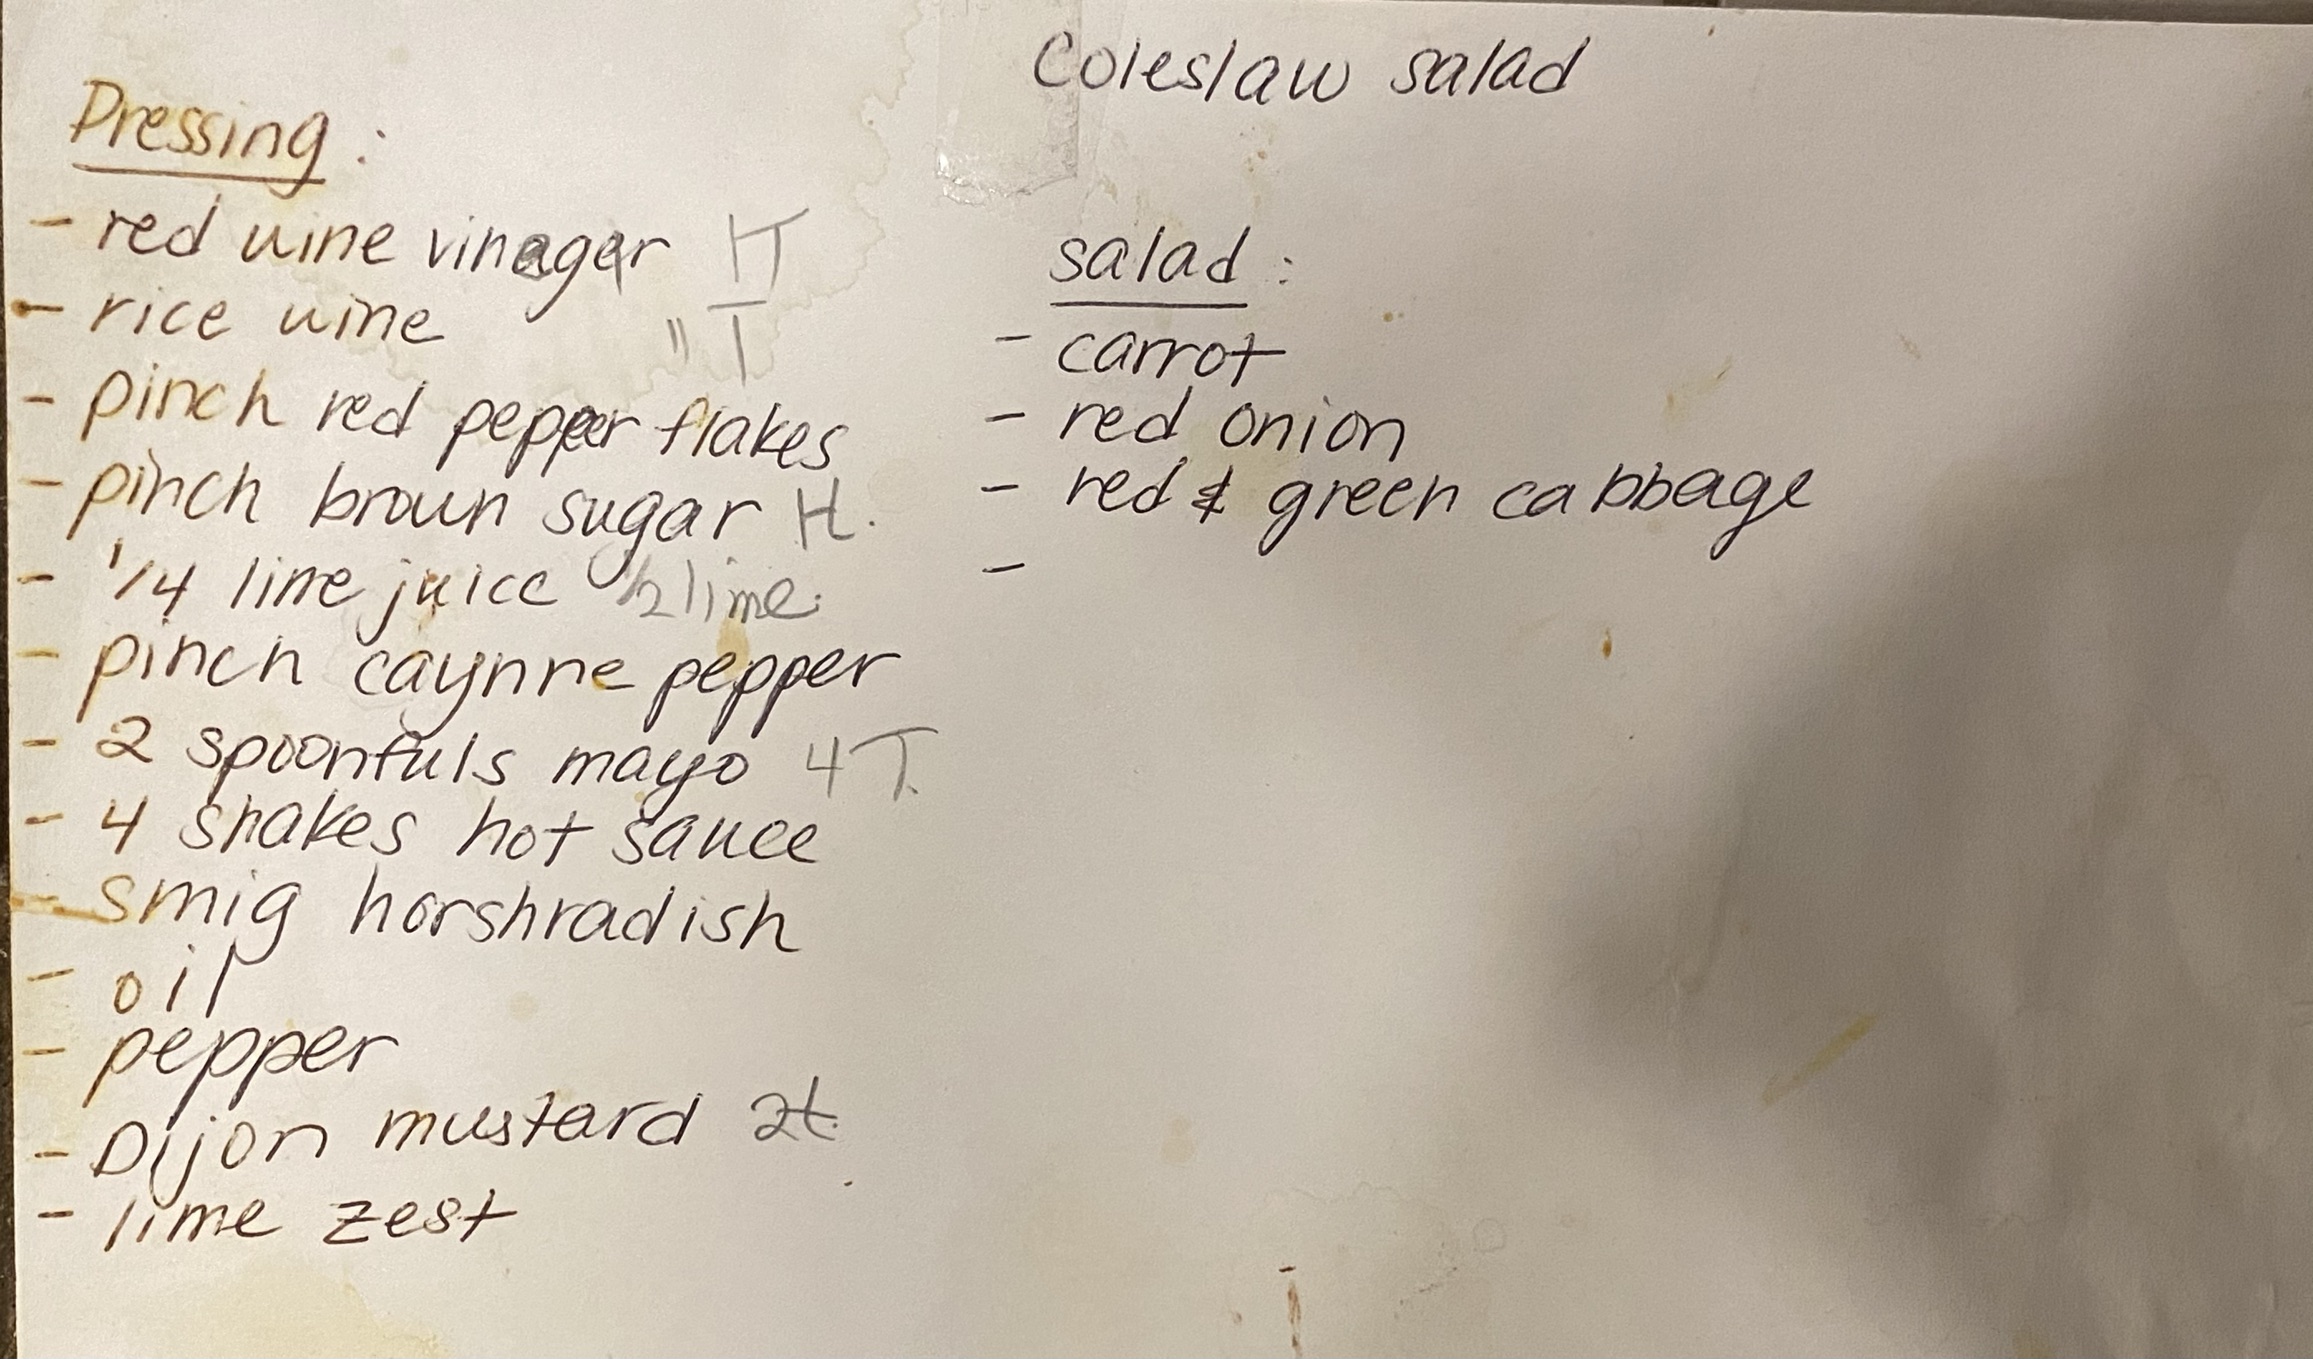 Coleslaw salad
Dressing:
- red wine vinegar 1T
- rice wine " T
- pinch red pepper flakes
- pinch brown sugar 1t.
- 1/4 lime juice 1/2 lime.
- pinch caynne pepper
- 2 spoonfuls mayo 4T.
- 4 shakes hot sauce
- smig horshradish
- oil
- pepper
- Dijon mustard 2t.
- lime zest
salad:
- carrot
- red onion
- red & green cabbage
-